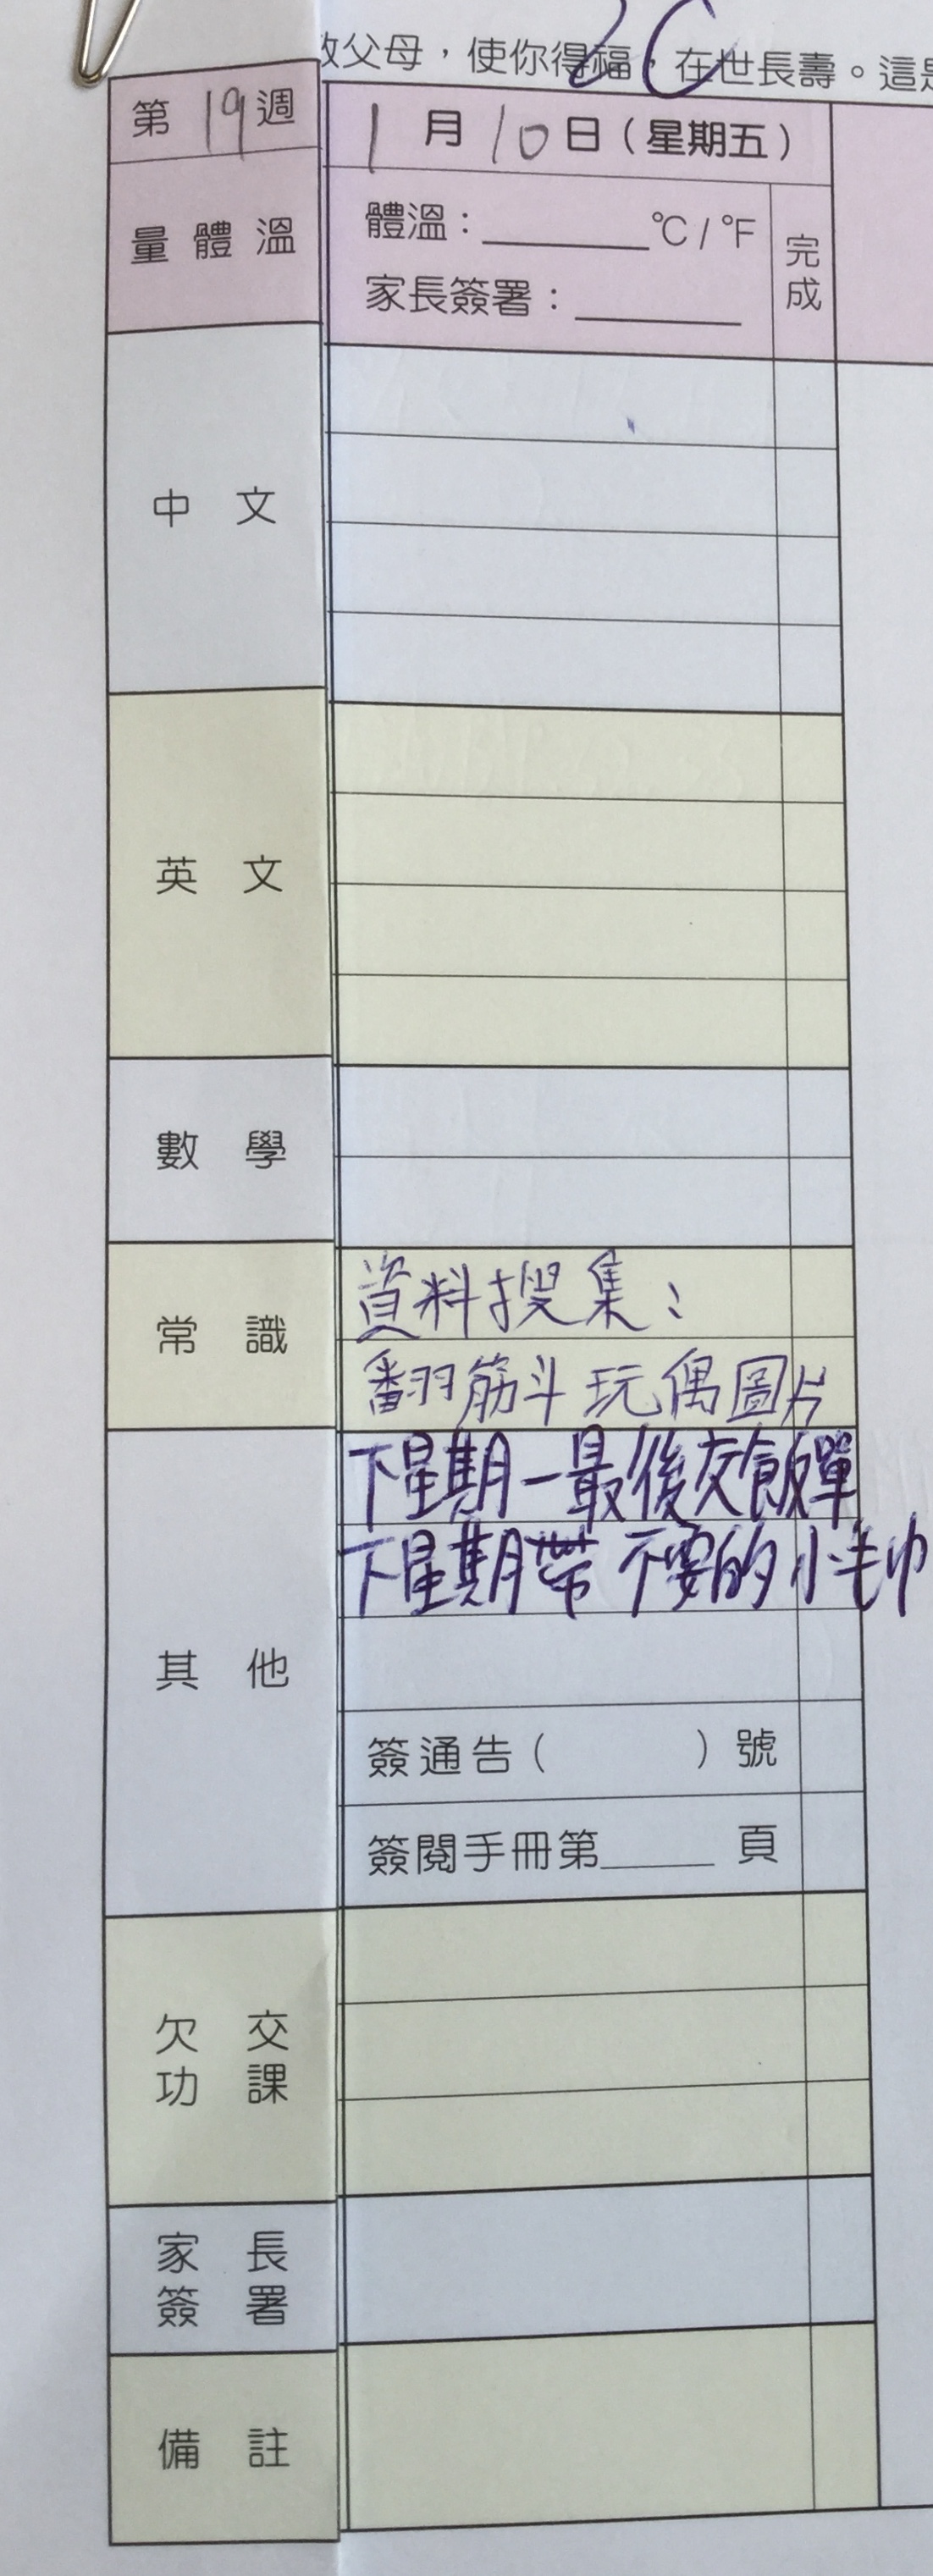 2C
敬父母，使你得福，在世長壽。這是
第 19 週
1 月 10 日（星期五）
量體溫
體溫：______℃/℉
家長簽署：______
完成
中文
英文
數學
常識
資料搜集：
翻筋斗玩偶圖片
其他
下星期一最後交飯單
下星期帶不要的小毛巾
簽通告（　　）號
簽閱手冊第_____頁
欠交
功課
家長
簽署
備註